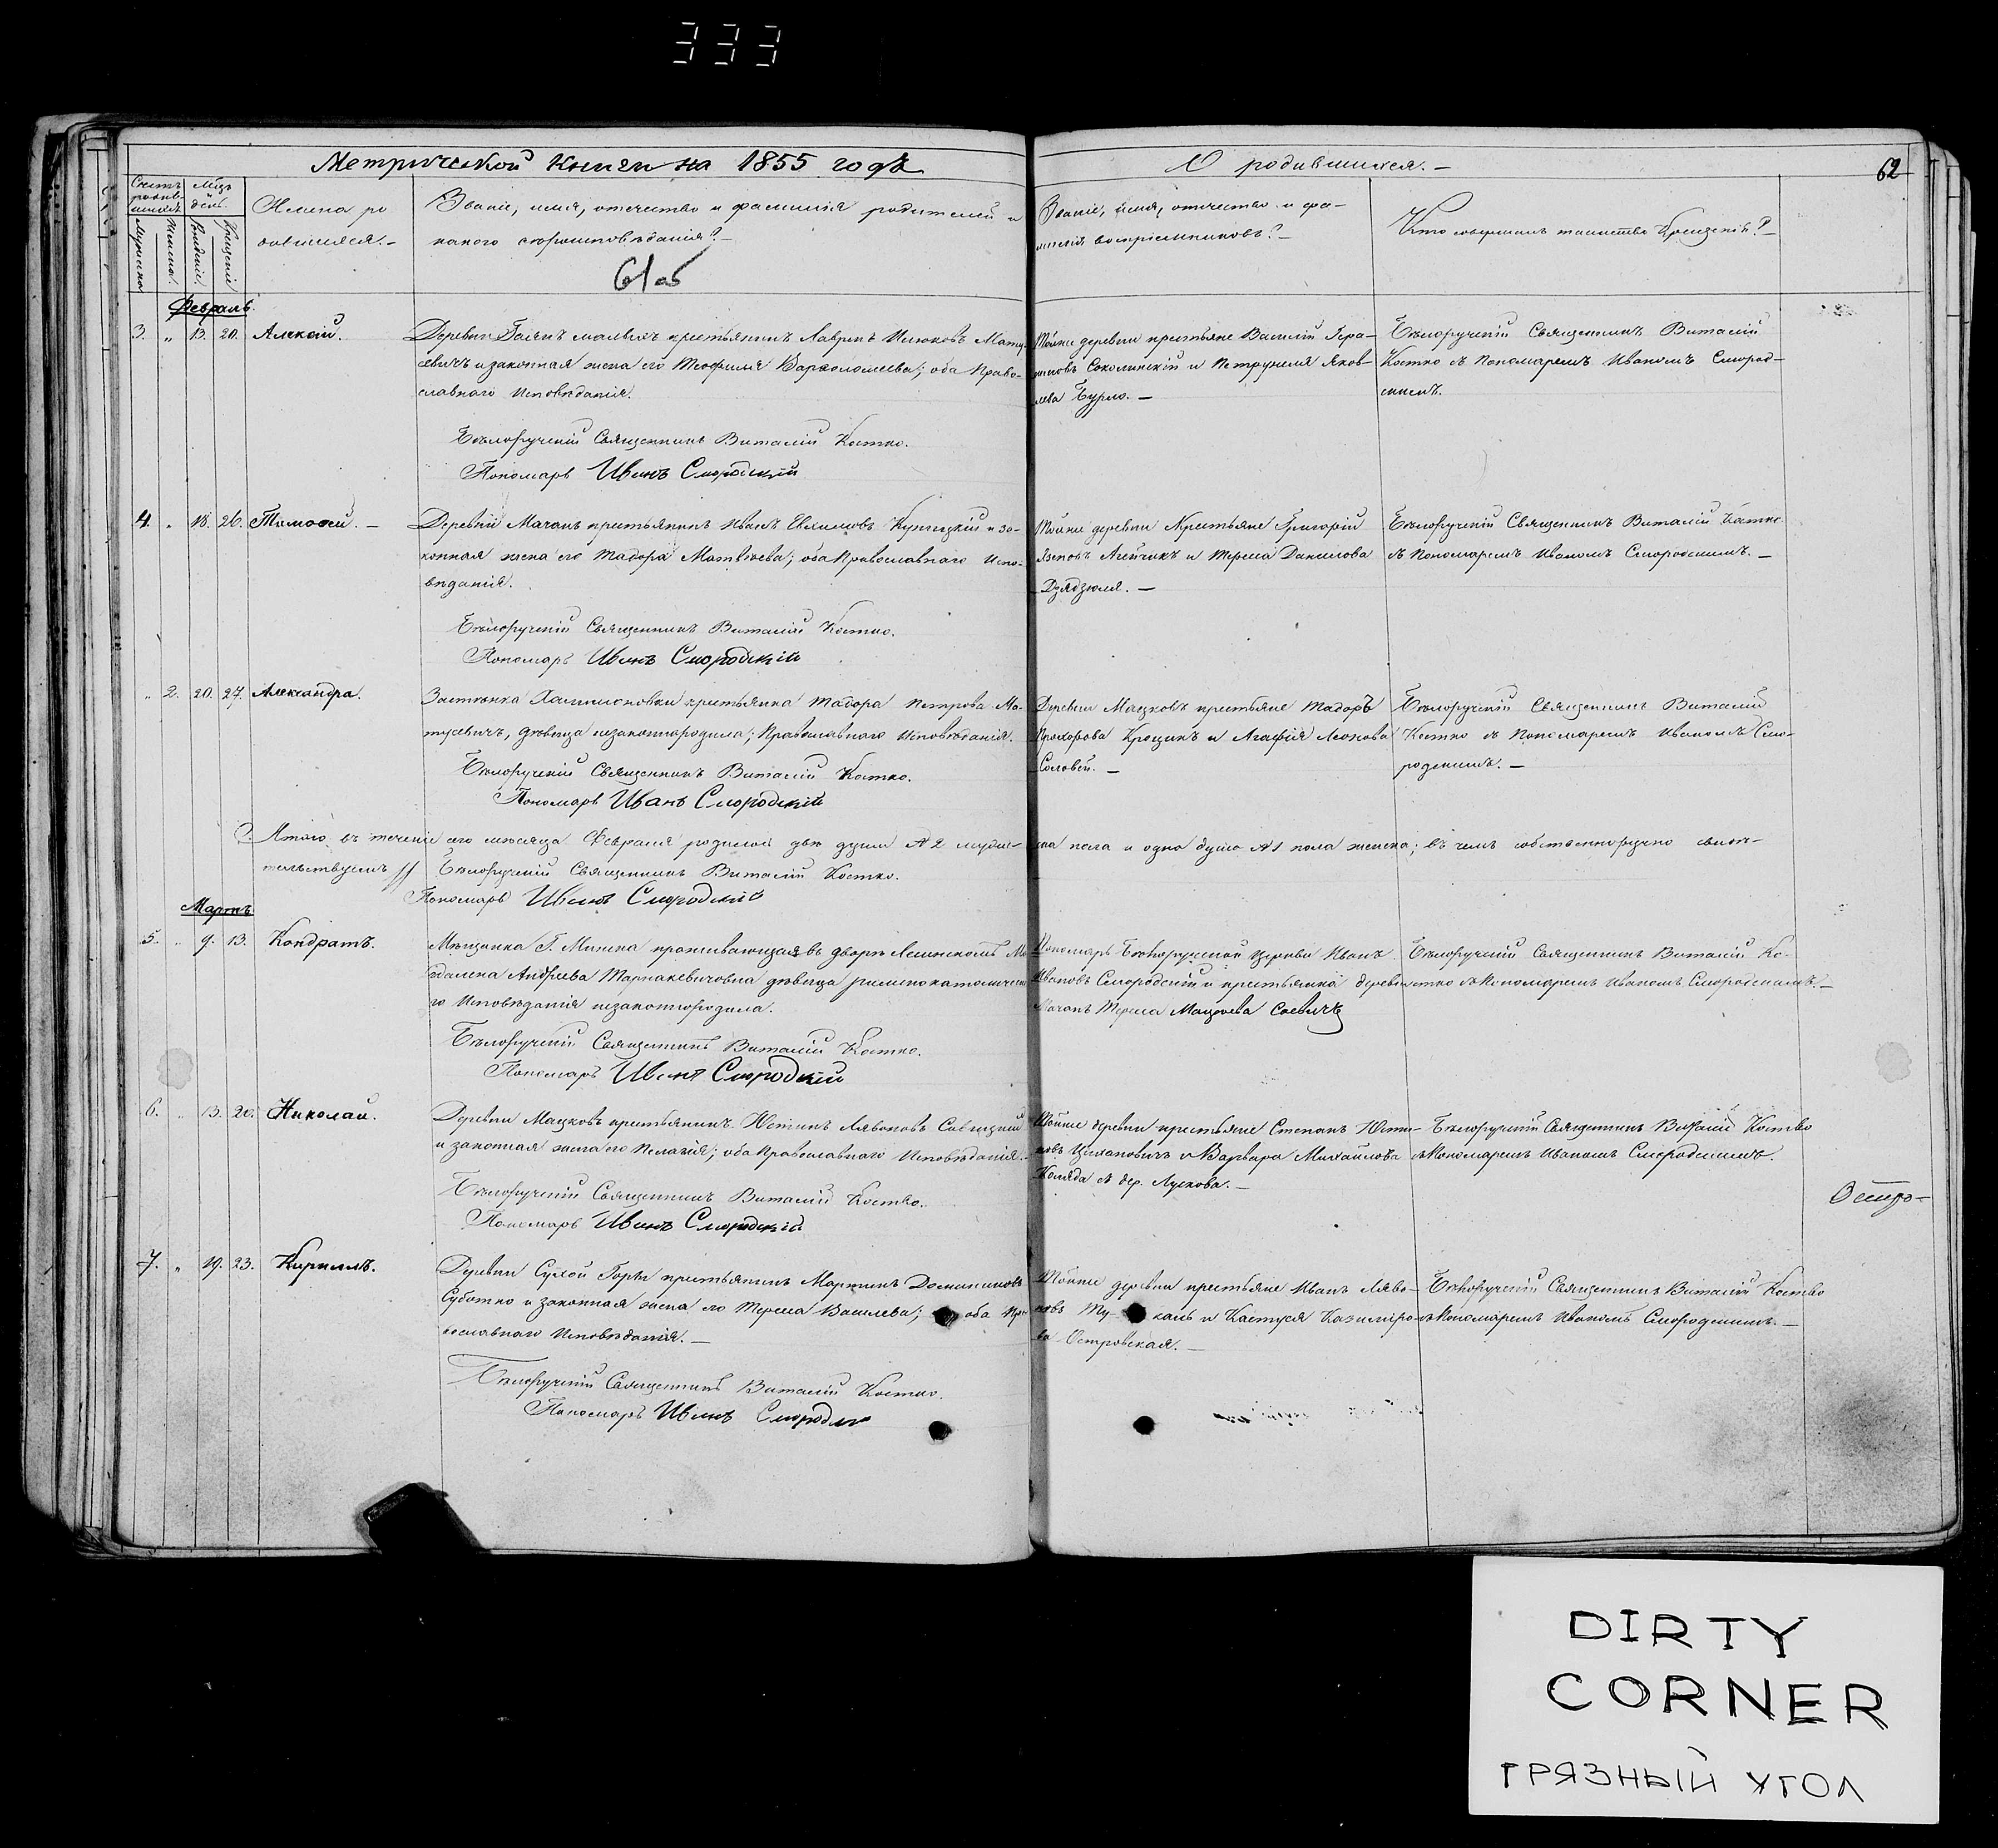 333
Метрической книги на 1855 годъ
О родившихся. —
62
Счетъ родив-шихся.
Мужеска
Женска
Мѣсяцъ и день.
Рожденія
Крещенія
Имена ро
дившихся. —
Званіе, имя, отчество и фамилія родителей и
какого вѣроисповѣданія? —
61об
Званіе, имя, отчество и фа-
милія воспріемниковъ? —
Кто совершалъ таинство Крещенія? —
Февраль.
3. " 13. 20. Алексѣй.
Деревни крестьянинъ Лавринъ Мату-
севичъ и законная жена его Теофиля Варѳоломеева; оба Право-
славнаго Исповѣданія.
Бѣлоручскій Священникъ Виталій Костко.
Пономарь Иванъ Смородскій
Тойже деревни крестьяне Василій Гера-
симовъ Соколинскій и Петрунеля Яков-
лева Бурло. —
Бѣлоручскій Священникъ Виталій
Костко съ Пономаремъ Иваномъ Смород-
скимъ.
4. " 18. 26. Тимоѳей. —
Деревни Мачанъ крестьянинъ Иванъ Евхимовъ и за-
конная жена его Тадора Матвѣева; оба Православнаго Испо-
вѣданія.
Бѣлоручскій Священникъ Виталій Костко.
Пономарь Иванъ Смородскій
Тойже деревни Крестьяне Григорій
и Тереса Данилова
Дзядзюля. —
Бѣлоручскій Священникъ Виталій Костко
съ Пономаремъ Иваномъ Смородскимъ. —
" 2. 20. 27. Александра.
Застѣнка крестьянка Тадора Петрова Ма-
тусевичъ, дѣвица незаконнородила; Православнаго Исповѣданія.
Бѣлоручскій Священникъ Виталій Костко.
Пономарь Иванъ Смородскій
Деревни Мацковъ крестьяне Тадоръ
Прохоровъ Крощикъ и Агафія Леонова
Соловей. —
Бѣлоручскій Священникъ Виталій
Костко съ Пономаремъ Иваномъ Смо-
родскимъ. —
Итого въ теченіе сего мѣсяца Февраля родилось двѣ души № 2 муже-
ска пола и одна душа № 1 пола женска; въ чемъ собственноручно свидѣ-
тельствуемъ // Бѣлоручскій Священникъ Виталій Костко.
Пономарь Иванъ Смородскій
Мартъ
5. " 9. 13. Кондратъ.
Мѣщанка Г. Минска проживающая въ дворѣ Ма-
гдалена Андреева дѣвица римскокатолическа-
го Исповѣданія незаконнородила.
Бѣлоручскій Священникъ Виталій Костко.
Пономарь Иванъ Смородскій
Пономарь Бѣлоручской Церкви Иванъ
Ивановъ Смородскій и крестьянка деревни
Мачанъ Тереса Савичъ
Бѣлоручскій Священникъ Виталій Ко-
стко съ Пономаремъ Иваномъ Смородскимъ. —
6. " 13. 20. Николай.
Деревни Мацковъ крестьянинъ Устинъ Лявоновъ Савицкій
и законная жена его Пелагія; оба Православнаго Исповѣданія.
Бѣлоручскій Священникъ Виталій Костко.
Пономарь Иванъ Смородскій
Тойже деревни крестьяне Степанъ Усти-
новъ Цихановичъ и Варвара Михайлова
Коляда съ дер. Лускова. —
Бѣлоручскій Священникъ Виталій Костко
съ Пономаремъ Иваномъ Смородскимъ.
Остро-
7. " 19. 23. Кириллъ.
Деревни Сухой Горы крестьянинъ Мартинъ Доминиковъ
Суботко и законная жена его Тереса Васильева; оба Пра-
вославнаго Исповѣданія. —
Бѣлоручскій Священникъ Виталій Костко.
Пономарь Иванъ Смородск
Тойже деревни крестьяне ИванъЛяво-
новъ и Кастуся Казиміро-
ва Островская. —
Бѣлоручскій Священникъ Виталій Костко
съ Пономаремъ Иваномъ Смородскимъ. —
DIRTY
CORNER
ГРЯЗНЫЙ УГОЛ